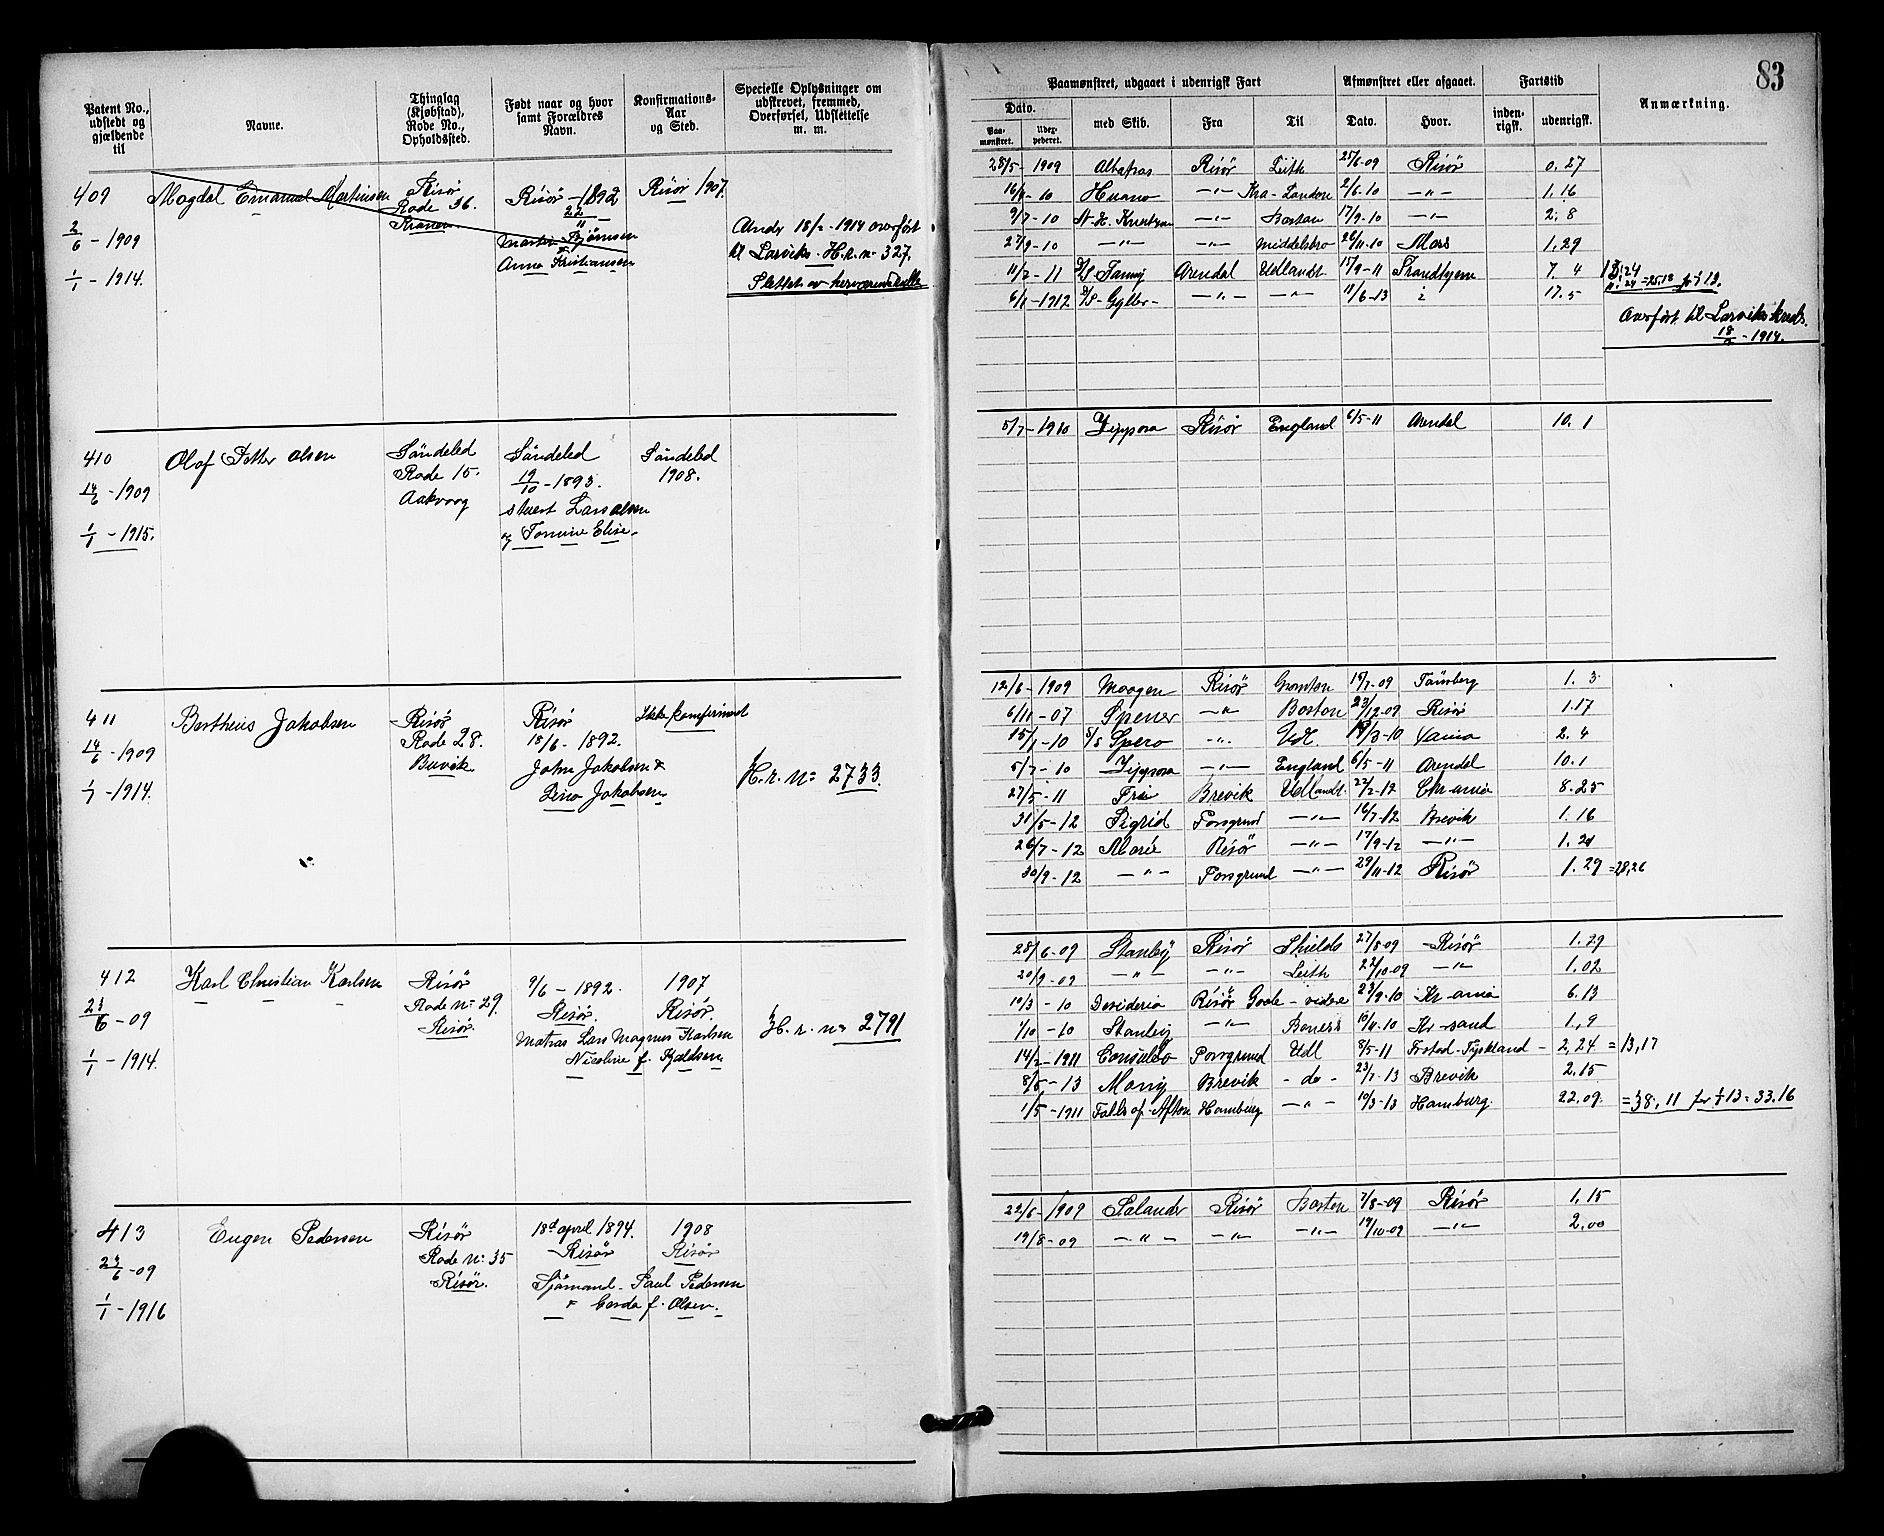 83
Patent No., udstedt og gjældende til
Navne.
Thinglag (Kjøbstad), Rode No., Opholdssted.
Født naar og hvor samt Forældres Navn.
Konfirmations-Aar og Sted.
Specielle Oplysninger om udskrevet, fremmed, Overførsel, Udslettelse m. m.
Paamønstret, udgaaet i udenrigsk Fart
Afmønstret eller afgaaet.
Fartstid
Anmærkning.
Dato.
med Skib.
Fra
Til
Dato.
Hvor.
inden-rigsk.
udenrigsk.
Paa-mønstret.
Udex-pederet.
409
2/6 - 1909
1/1 - 1914.
Magdal Emanuel Martinsen
Risør
Rode 36.
Tranen
Risør - 1892
22/11
Martin Bjørnsen
Anna Kristiansen
Risør 1907.
Andr 18/2 - 1914 overført
til Larviks H.r.n. 327.
Slettet av herværende rulle
28/5 - 1909 Albatros Risør Leith 25/6-09 Risør 0.27
- 10 Huano -"- Kra-London 2/6-10 -"- 1.16
9/7 - 10 -"- Boston 17/9-10 -"- 2.8
27/9 - 10 -"- -"- Middelsbro 26/11-10 Moss 1.29
11/2 - 11 Arendal Udlandt 15/9-11 7.4
6/1 - 1912 -"- -"- 11/6-13 17.5
Overført til Larviks kreds.
18/2 - 1914.
410
14/6 - 1909
1/1 - 1915.
Olaf Petter Olsen
Søndeled
Rode 15.
Aakvaag
Søndeled
19/10 - 1893.
Lars Olsen
og Tomine Elise
Søndeled
1908.
5/7 - 1910 Zippora Risør England 6/5-11 Arendal 10.1
411
14/6 - 1909
1/1 - 1914.
Bertheus Jakobsen
Risør
Rode 28.
Buvik
Risør
18/6 - 1892.
John Jakobsen &
Lina Jakobsen
Ikke konfirmert
H.r. n: 2733.
12/6 - 1909 Maagen Risør Granton 15/7-09 Tønsberg 1.3
6/11 - 07 Spener -"- Boston 23/12-09 Risør 1.17
15/1 - 10 S/S Spero -"- Udl. 19/3-10 2.4
5/7 - 10 Zippora -"- England 6/5-11 Arendal 10.1
27/5 - 11 Fri Brevik Udlandt. 22/2-12 Chr-ania 8.25
31/5 - 12 Sigrid Porsgrund -"- 16/7-12 Brevik 1.16
26/7 - 12 Marie Risør -"- 17/9-12 -"- 1.21
30/9 - 12 -"- Porsgrund -"- 29/11-12 Risør 1.29 = 28,26
412
23/6 - 09
1/1 - 1914.
Karl Christian Karlsen
Risør
Rode n: 29.
Risør.
9/6 - 1892.
Risør.
Matros Lars Magnus Karlsen
Nicoline f. Kjeldsen
1907
Risør.
H.r. n: 2791
28/6-09 Stanley Risør Shields 27/8-09 Risør 1.29
20/9-09 -"- -"- Leith 22/10-09 -"- 1.02
10/3 - 10 Desideria Risör Goole - videre 23/9-10 Kr-ania 6.13
1/10 - 10 Stanley -"- Boness 10/11-10 Kr-sand 1.9
14/2 - 1911 Consuelo Porsgrund Udl 8/5-11 Frstad-Tyskland - 2,24 = 13,17
8/5 - 13 Brevik - do - 23/7-13 Brevik 2.15
1/5 - 1911 Falls of Afton Hamburg -"- 10/3-13 Hamburg. 22.09. = 38.11 pr 1/1 13 = 33.16
413
23/6 - 09
1/1 - 1916
Eugen Pedersen
Risør
Rode n: 35
Risør.
18d april 1894.
Risør
Sjømand Paul Pedersen
& Gerda f. Olsen.
1908
Risør
22/6 - 1909 Salander Risør Boston 7/8-09 Risør 1,15
19/8-09 -"- -"- -"- 19/10-09 -"- 2.00